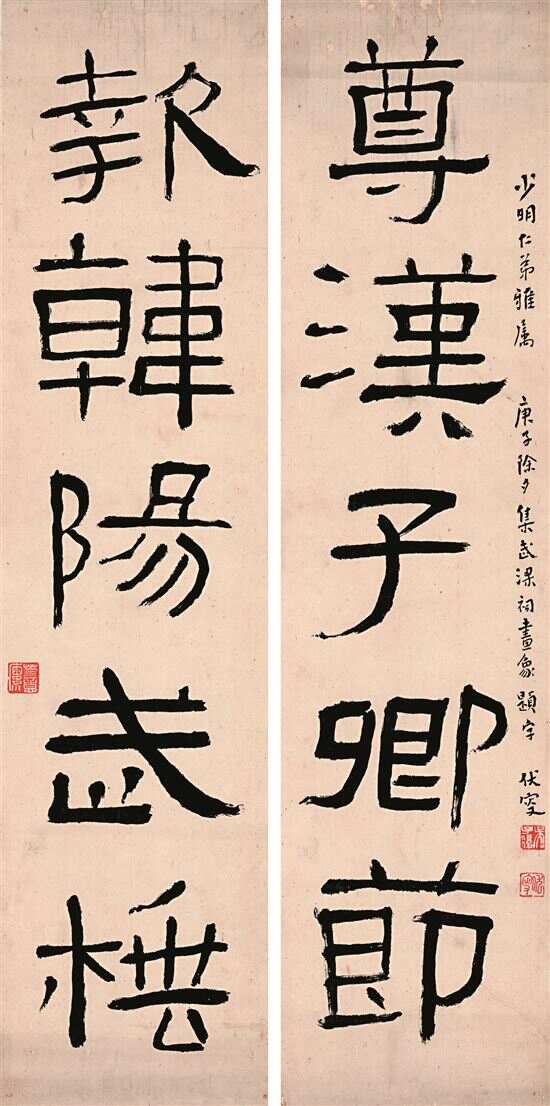 尊漢子卿節
少明仁弟雅屬 庚子除夕集武梁祠畫象題字 伏叟
報韓陽武棰